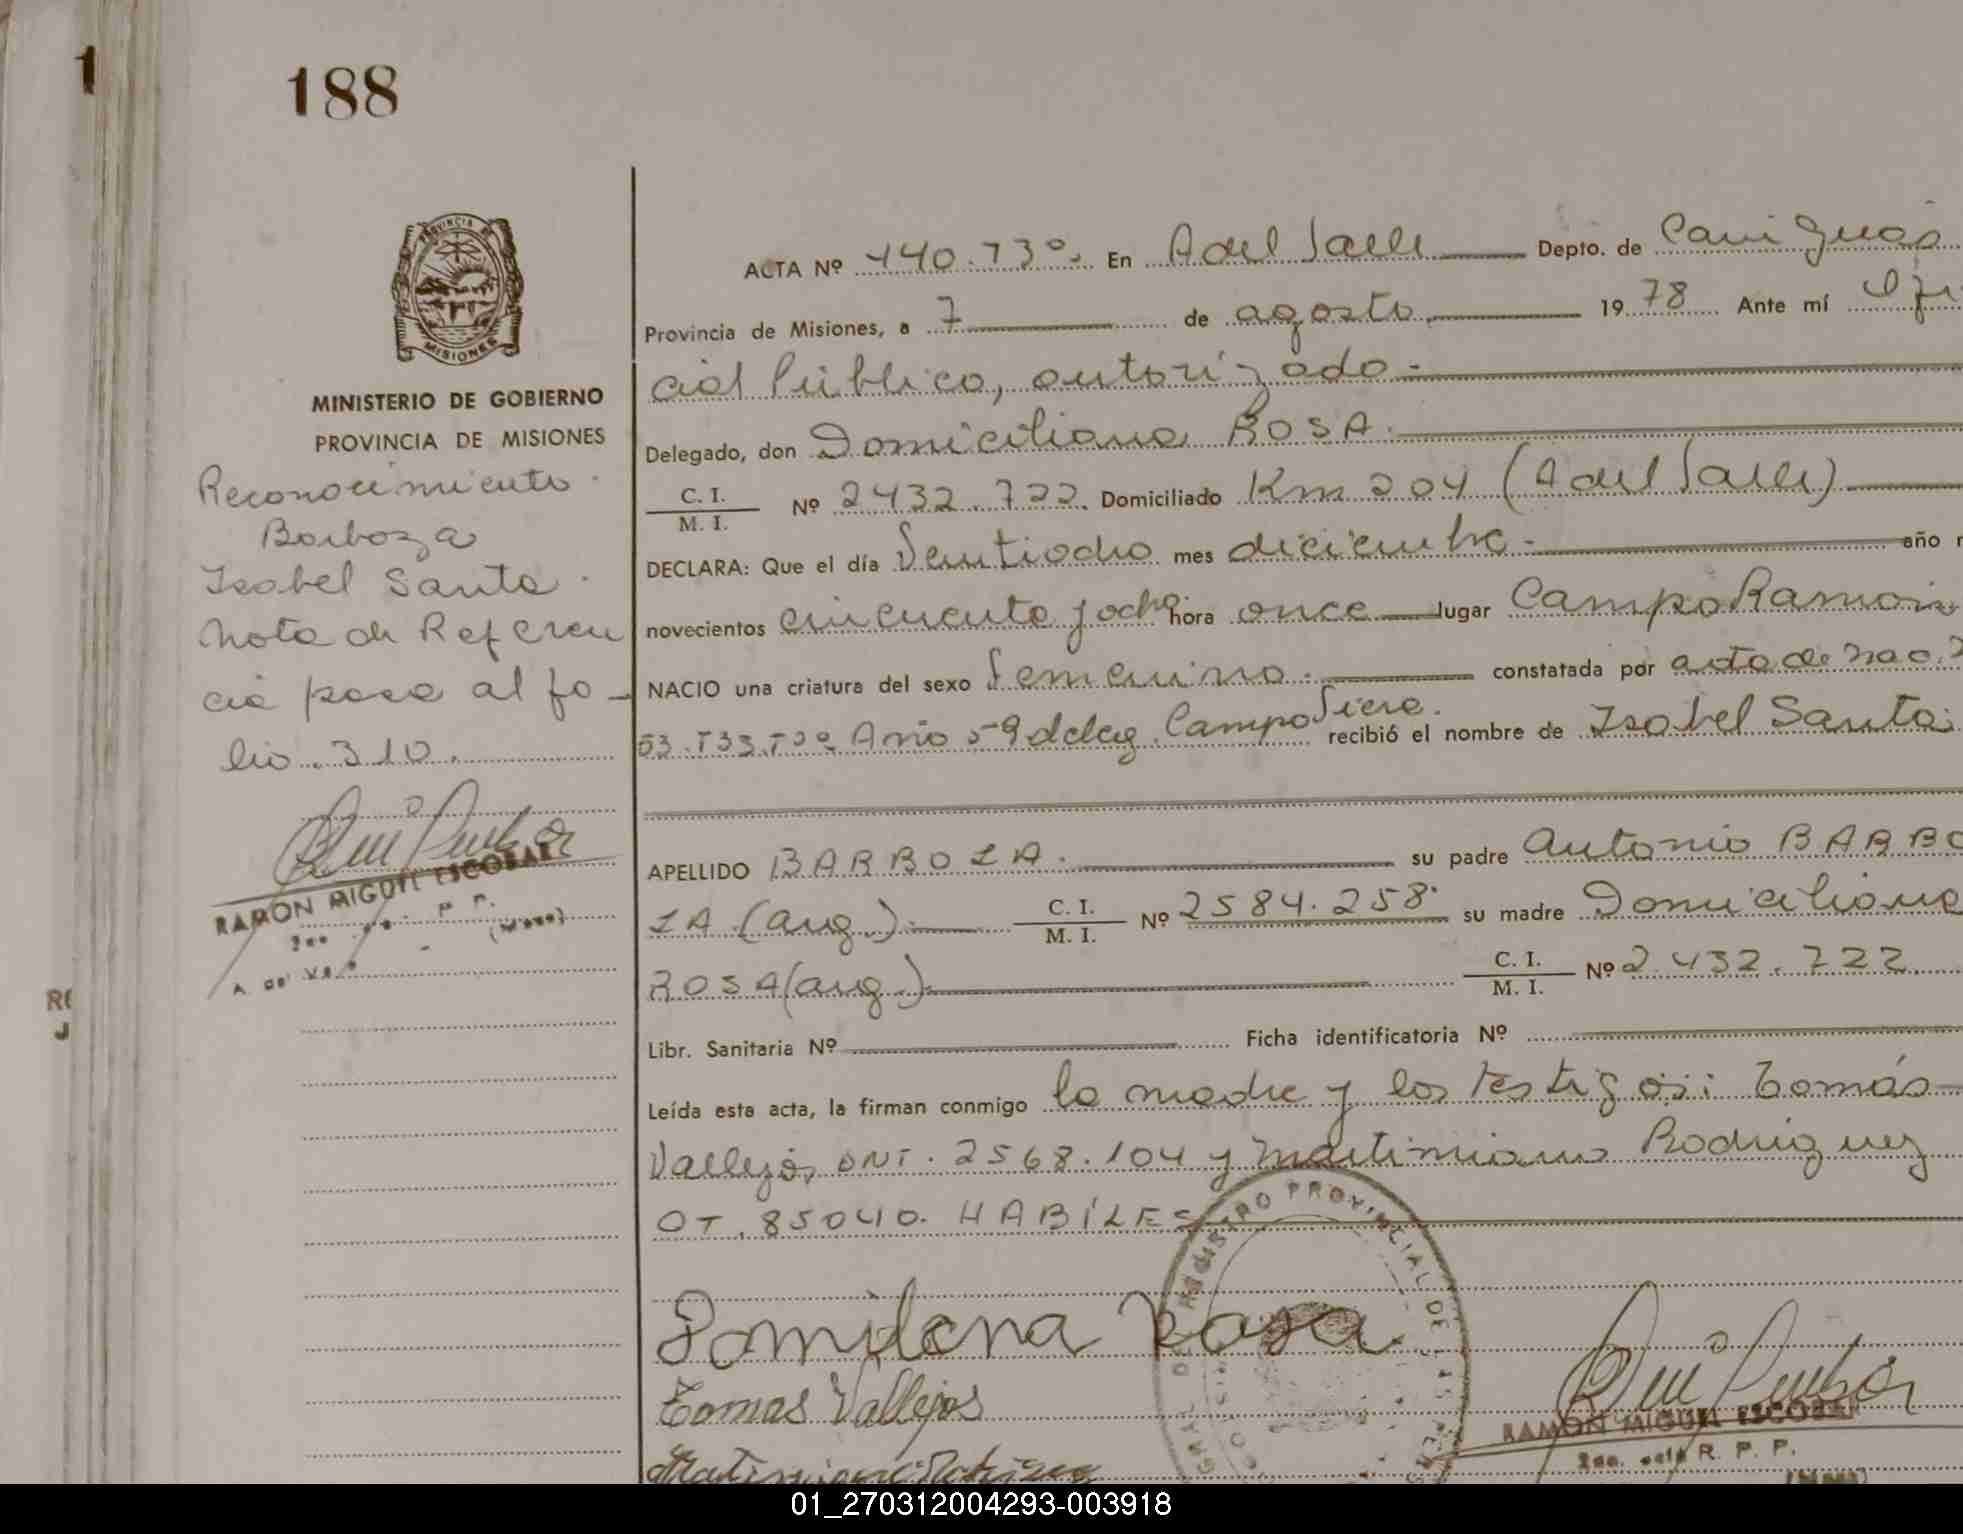 1
188
PROVINCIA DE
MISIONES
MINISTERIO DE GOBIERNO
PROVINCIA DE MISIONES
Reconocimiento.
Barboza
Isabel Santa.
Nota de Referen
cia pasa al fo-
lio. 310.
RAMON MIGUEL ESCOBAR
ACTA Nº 140.T3º. En A del Valle Depto. de Cainguás
Provincia de Misiones, a 7 de agosto. 1978 Ante mí Ofi
cial Público, autorizado.
Delegado, don Domiciliana ROSA.
C. I.
M. I.
Nº 2432.722. Domiciliado Km 204 (A del Valle)
DECLARA: Que el día Ventiocho mes diciembre. año
novecientos cincuenta y ocho. hora once lugar Campo Ramón
NACIO una criatura del sexo Femenino. constatada por acta de nac.
53.T33.T3º Año 59 deleg. Campo Viera. recibió el nombre de Isabel Santa.
APELLIDO BARBOZA. su padre Antonio BARBO
ZA (arg.). C. I.
M. I.
Nº 2584.258. su madre Domiciliana
ROSA (arg.). C. I.
M. I.
Nº 2.432.722.
Libr. Sanitaria Nº Ficha identificatoria Nº
Leída esta acta, la firman conmigo la madre y los testigos: Tomás
Vallejos, DNI. 2568.104 y Martimiano Rodriguez
OT. 85040. HABILES
Tomas Vallejos
RAMON MIGUEL ESCOBAR
R. P. P.
01_270312004293-003918